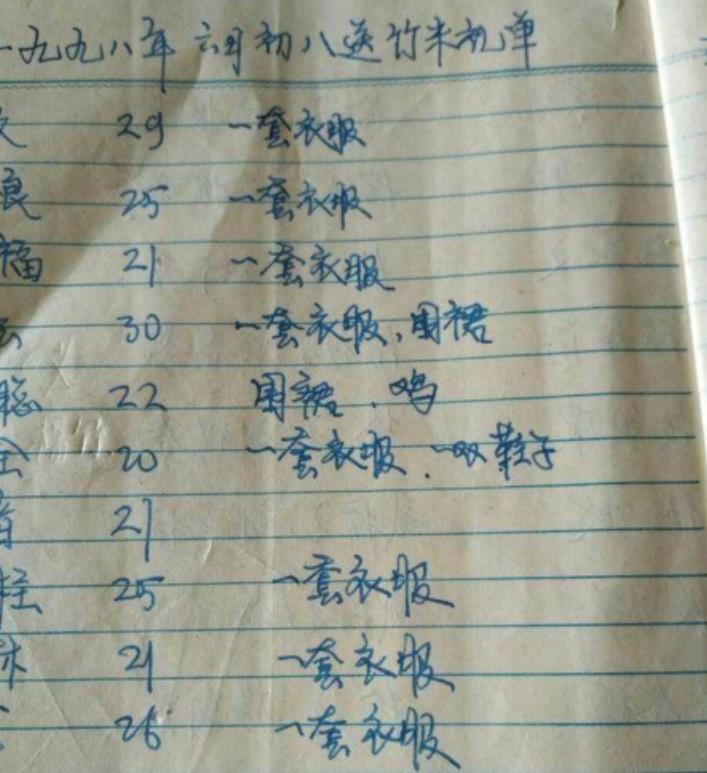 一九九八年 六月初八送竹米机单
29 一套衣服
良 25 一套衣服
福 21 一套衣服
30 一套衣服、围裙
聪 22 围裙、鸡
全 20 一套衣服、一双鞋子
21
柱 25 一套衣服
林 21 一套衣服
26 一套衣服